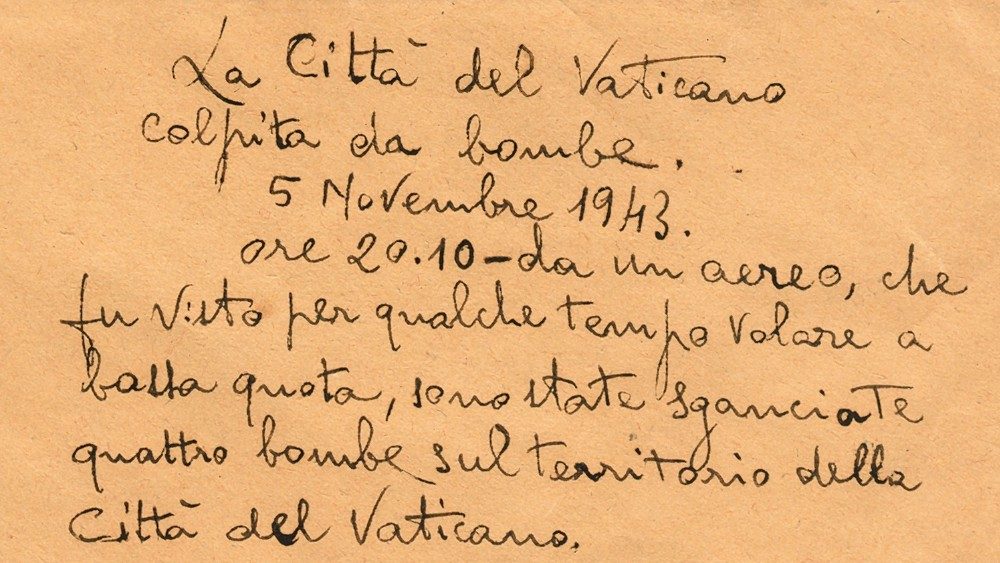 La Città del Vaticano
colpita da bombe.
5 Novembre 1943.
ore 20.10 - da un aereo, che
fu visto per qualche tempo volare a
bassa quota, sono state sganciate
quattro bombe sul territorio della
Città del Vaticano.